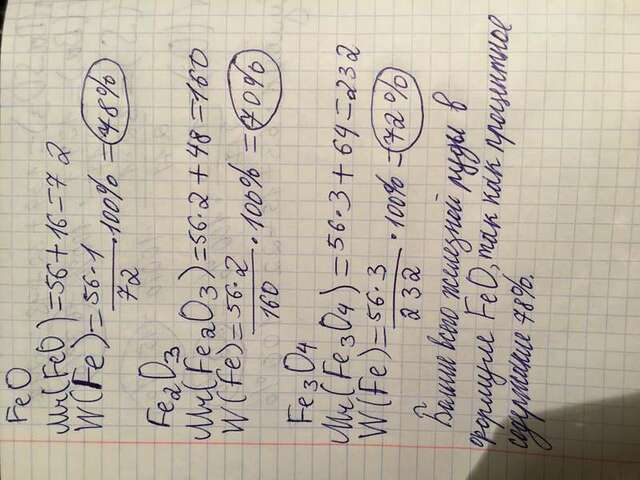 FeO
Mr(FeO)=56+16=72
W(Fe)=56·1/72·100%=78%
Fe2O3
Mr(Fe2O3)=56·2+48=160
W(Fe)=56·2/160·100%=70%
Fe3O4
Mr(Fe3O4)=56·3+64=232
W(Fe)=56·3/232·100%=72%
Больше всего железной руды в
формуле FeO, так как процентное
содержание 78%.